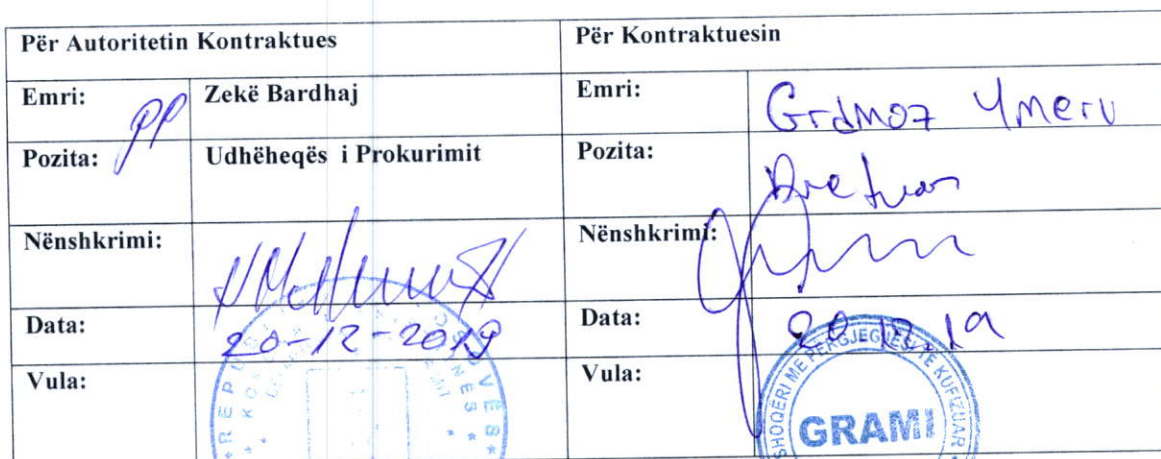 Për Autoritetin Kontraktues Për Kontraktuesin
Emri: Zekë Bardhaj Emri: Gramoz Ymeru
pp
Pozita: Udhëheqës i Prokurimit Pozita:
Nënshkrimi: Nënshkrimi:
Data: 20-12-2019 Data: 20.12.19
Vula: Vula:
SHOQËRI ME PËRGJEGJËSI TË KUFIZUAR
GRAMI